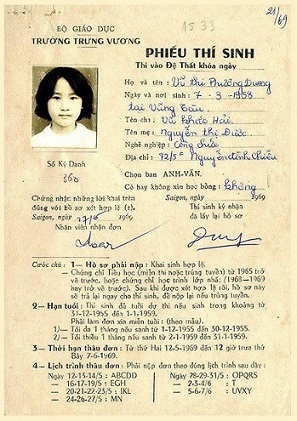 BỘ GIÁO DỤC
TRƯỜNG TRƯNG VƯƠNG
15 33
21/69
PHIẾU THÍ SINH
Thi vào Đệ Thất khóa ngày
Họ và tên : Vũ thị Phương Dương
Ngày và nơi sinh : 7 - 3 - 1958
tại Vũng Tàu
Tên cha : Vũ khắc Hải
Tên mẹ : Nguyễn thị Dước
Nghề nghiệp : Công chức
Địa chỉ : 72/5c Nguyễn đình Chiểu
Số Ký Danh
360
Chọn ban ANH-VĂN.
Có hay không xin học bổng : không
Chứng nhận những lời khai trên
đúng với hồ sơ xét hợp lệ (1).
Saigon, ngày 27/6 1969
Nhân viên nhận đơn
Saigon, ngày 1969
Thí sinh ký nhận
đã lấy lại hồ sơ
Cước chú : 1— Hồ sơ phải nộp : Khai sinh hợp lệ.
— Chứng chỉ Tiểu học (miễn thi hoặc trúng tuyển) từ 1965 trở
về trước, hoặc chứng chỉ học trình lớp nhất : (1968—1969
hay trở về trước). Sau khi được xét hợp lệ rồi, hồ sơ này
sẽ trả lại ngay cho thí sinh, để nộp lại nếu trúng tuyển.
2— Hạn tuổi : Thí sinh đủ tuổi dự thi nếu sinh trong khoảng từ
31-12-1955 đến 1-1-1959.
Phải làm đơn xin miễn tuổi : (theo mẫu).
1)— Tối đa 1 tháng nếu sanh từ 1-12-1955 đến 30-12-1955.
2)— Tối thiểu 1 tháng nếu sanh từ 2-1-1959 đến 31-1-1959.
3— Thời hạn thâu đơn : Từ thứ Hai 12-5-1969 đến 12 giờ trưa thứ
Bảy 7-6-1969.
4— Lịch trình thâu đơn : Phải nộp đơn theo đúng lịch trình sau đây :
Ngày 12-13-14/5 : ABCDD Ngày 28-29-31/5 : OPQRS
— 16-17-19/5 : EGH — 2-3-4/6 : T
— 20-21-22-23/5 : IKL — 5-6-7/6 : UVXY
— 24-26-27/5 : MN